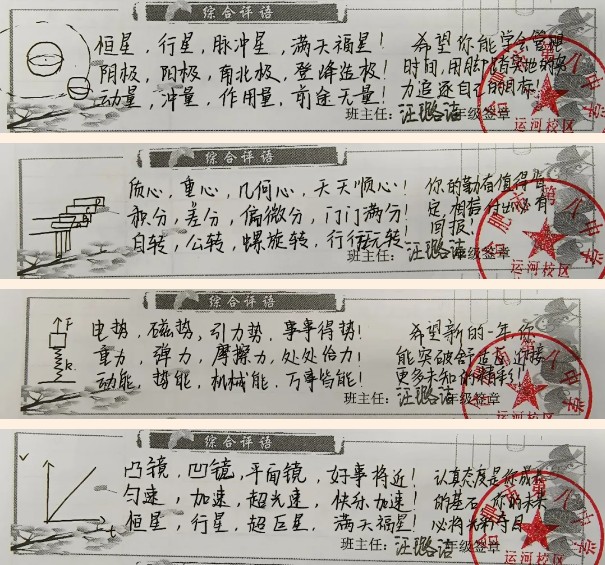 综合评语
恒星，行星，脉冲星，满天福星！ 希望你能学会管理
阴极，阳极，南北极，登峰造极！ 时间，用脚踏实地的努
动量，冲量，作用量，前途无量！ 力追逐自己的目标。
班主任：汪璐洁 年级签章
运河校区
综合评语
质心，重心，几何心，天天顺心！ 你的勤奋值得肯
积分，差分，偏微分，门门满分！ 定，相信付出必有
自转，公转，螺旋转，行行玩转！ 回报！
班主任：汪璐洁 年级签章
运河校区
综合评语
F
k
电势，磁势，引力势，事事得势！ 希望新的一年，你
重力，弹力，摩擦力，处处给力！ 能突破舒适区，迎接
动能，势能，机械能，万事皆能！ 更多未知的精彩！
班主任：汪璐洁 年级签章
运河校区
综合评语
v
t
凸镜，凹镜，平面镜，好事将近！ 认真态度是你成长
匀速，加速，超光速，快乐加速！ 的基石，你的未来
恒星，行星，超巨星，满天福星！ 必将光彩夺目
班主任：汪璐洁 年级签章
运河校区